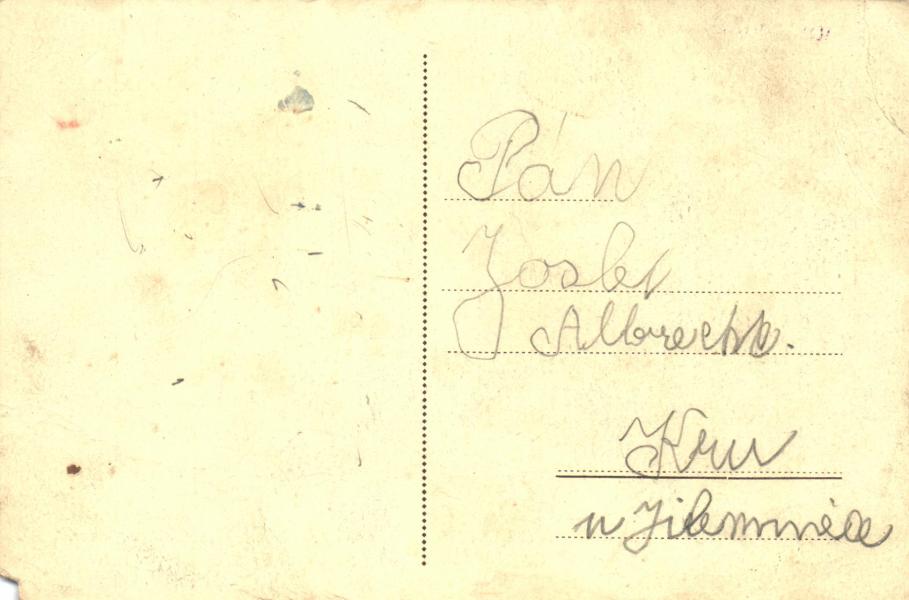 Pán
Josef
Albrecht.
Kruh
u Jilemnice